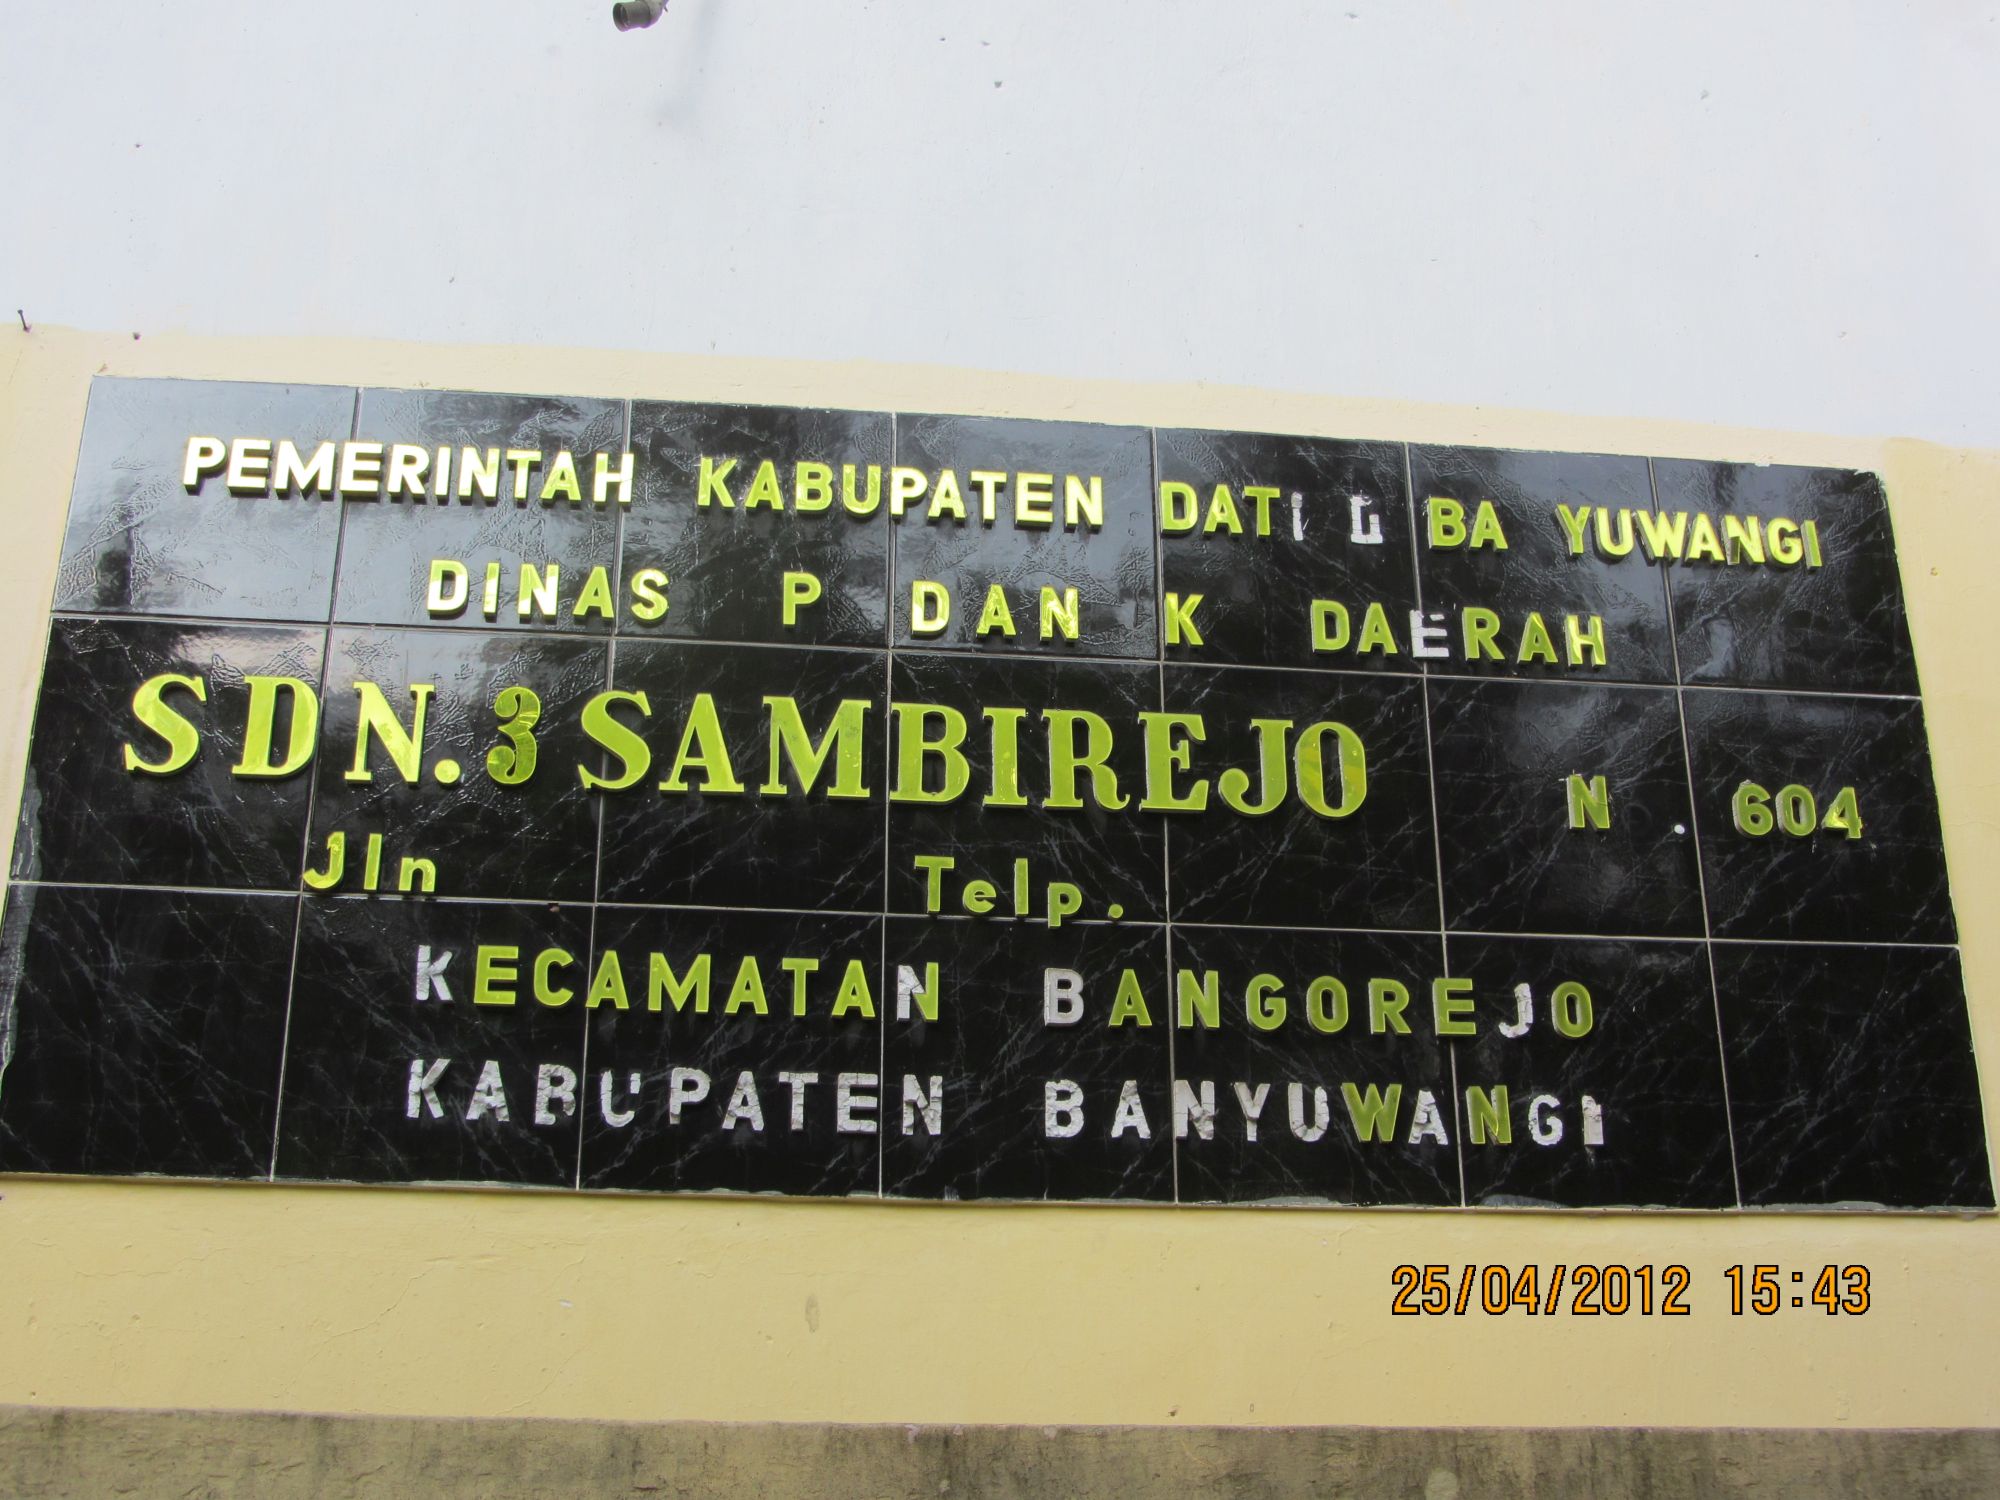 PEMERINTAH KABUPATEN DATI II BA YUWANGI
DINAS P DAN K DAERAH
SDN. 3 SAMBIREJO N 604
Jln Telp.
KECAMATAN BANGOREJO
KABUPATEN BANYUWANGI
25/04/2012 15:43